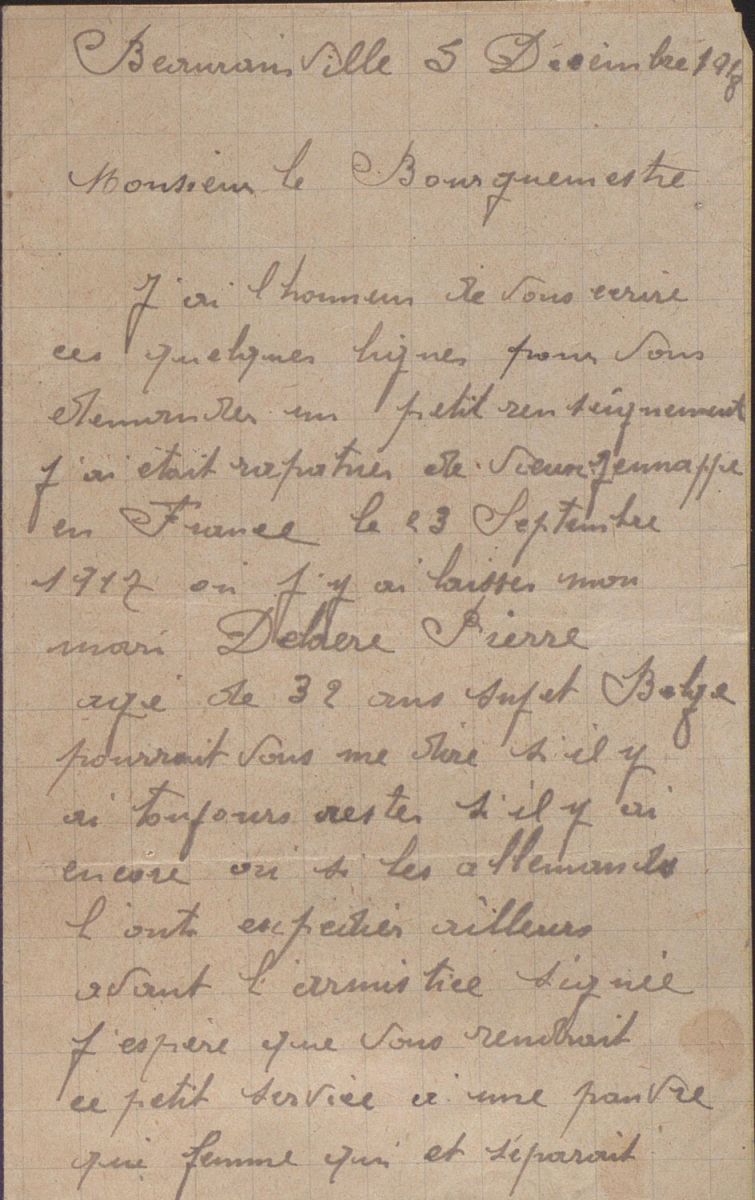 Beaurainville 5 Décembre 1918
Monsieur le Bourguemestre
J'ai l'honneur de vous ecrire
ces quelques lignes pour vous
demander un petit renseignement
j'ai était rapatrier de Vieux Jennappe
en France le 23 Septembre
1917 ou j'y ai laisser mon
mari Delaere Pierre
agé de 32 ans sujet Belge
pourrait vous me dire s'il y
ai toujours rester s'il y ai
encore ou si les allemands
l'ont expedier ailleurs
avant l'armistice signée
J'espère que vous rendrait
ce petit service a une pauvre
qui femme qui et séparait